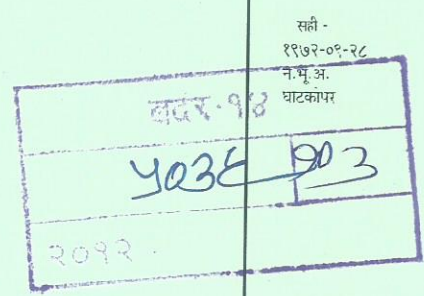 सही -
१९७२-०९-२८
न.भू.अ.
घाटकोपर
बदर-१४
५०३६ १०३
२०१२